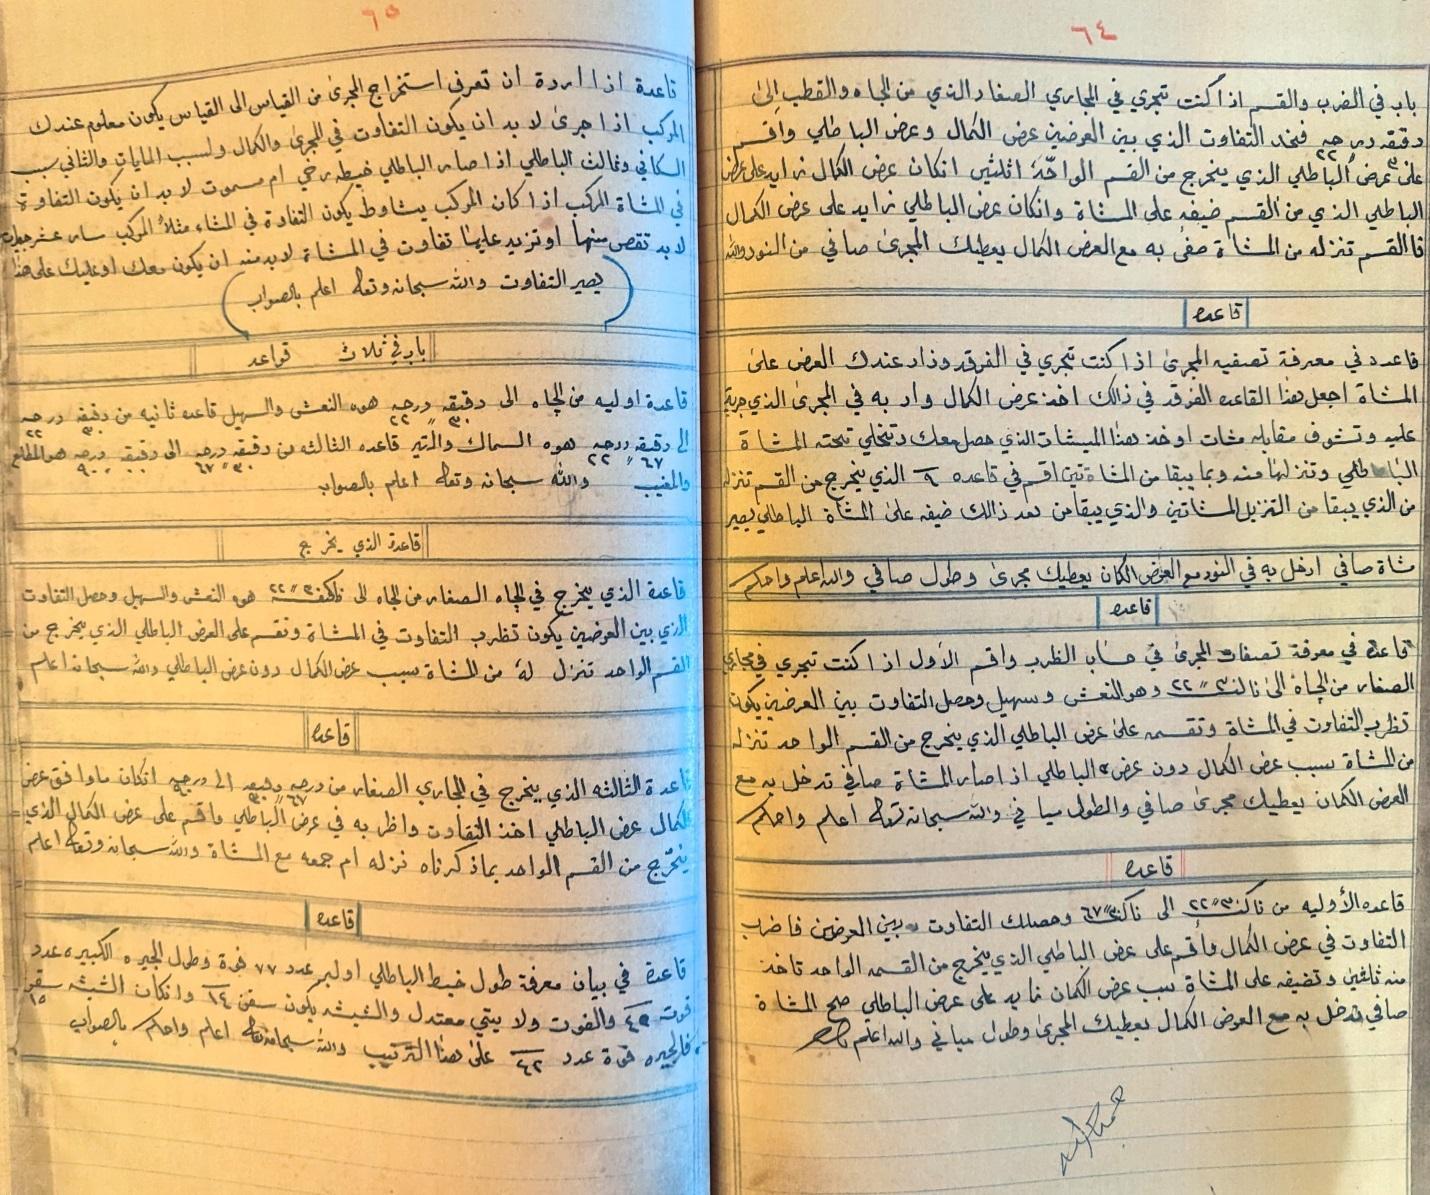 ٦٤
باب في الضرب والقسم اذا كنت تجري في المجاري الصغار الذي من الجاه والقطب إلى
دقيقه درجه فخذ التفاوت الذي بين العرضين عرض الكمال وعرض الباطلي واقسم
٣٠ ٢٢
على عرض الباطلي الذي يخرج من القسم الواحدة اثلثين انكان عرض الكمال زايد على عرض
الباطلي الذي من القسم ضيفه على المشاة وانكان عرض الباطلي زايد على عرض الكمال
فا القسم تنزله من المشاة صفى به مع العرض الكمال يعطيك المجرى صافي من النود والله
قاعده
قاعده في معرفة تصفيه المجرى اذا كنت تجري في الفرقد وزاد عندك العرض على
المشاة اجعل هذا القاعده الفرقد في ذالك اخذ عرض الكمال وادر به في المجرى الذي جرية
عليه وتشوف مقابله مشات اوخذ هذا الميشات الذي حصل معك وتخلي تحته المشاة
الباطلي وتنزلها منه وبما يبقا من المشاتين اقسم في قاعده ٩ الذي يخرج من القسم تنزله
من الذي يبقا من التنزيل المشاتين والذي يبقا من بعد ذالك ضيفه على المشاة الباطلي يصير
مشاة صافي ادخل به في النود مع العرض الكمان يعطيك مجرى وطول صافي والله اعلم واحكم
قاعده
قاعدة في معرفة تصفات المجرى في حساب الظرب واقسم الأول اذا كنت تجري في مجاري
الصغار من الجاة الى ناكـ ٣٠ ٢٢ وهو النعش وسهيل وحصل التفاوت بين العرضين يكون
تظرب التفاوت في المشاة وتقسمه على عرض الباطلي الذي يخرج من القسم الواحد تنزله
من المشاة سبب عرض الكمال دون عرض الباطلي اذ اصار المشاة صافي تدخل به مع
العرض الكمان يعطيك مجرى صافي والطول صافي والله سبحانه وتعالى اعلم واحكم
قاعده
قاعده الأوليه من ناكـ ٣٠ ٢٢ الى ناكـ ٣٠ ٦٧ وحصلك التفاوت بين العرضين فاضرب
التفاوت في عرض الكمال وأقسم على عرض الباطلي الذي يخرج من القسمه الواحد تاخذ
منه ثلثين وتضيفه على المشاة سبب عرض الكمان زايد على عرض الباطلي صح المشاة
صافي تدخل به مع العرض الكمال يعطيك المجرى وطول صافي والله اعلم
٦٥
قاعدة اذا اردة ان تعرف استخراج المجرى من القياس الى القياس يكون معلوم عندك
المركب اذا جرى لا بد ان يكون التفاوت في المجرى والكمال ولسبب المايات والثاني سبب
السكاني وثالث الباطلي اذا صار الباطلي خيطه رخي ام مسموت لا بد ان يكون التفاوة
في المشاة المركب اذا كان المركب يشاوط يكون التفادة في المشاء مثلاً المركب سار عشر
لا بد تقص منها او تزيد عليها تفاوت في المشاة لا بد منه ان يكون معك او عليك على هذا
يصير التفاوت والله سبحانه وتعالى اعلم بالصواب
باب في ثلاث قواعد
قاعدة اوليه من الجاه الى دقيقه ودرجه هوه النعش والسهيل قاعده ثانيه من دقيقه درجه
٣٠ ٢٢ ٣٠ ٢٢
الى دقيقة ودرجه هوه السماك والتير قاعده الثالثه من دقيقه درجه الى دقيقه ودرجه هو المطلع
٦٧ ٢٢ ٣٠ ٦٧ ٩٠
والمغيب والله سبحانه وتعالى اعلم بالصواب
قاعدة الذي يخرج
قاعدة الذي يخرج في الجاه الصغار من الجاه الى ٣٠ ٢٢ هوه النعش والسهيل وحصل التفاوت
الذي بين العرضين يكون تظرب التفاوت في المشاة وتقسم على العرض الباطلي الذي يخرج من
القسم الواحد تنزل له من المشاة سبب عرض الكمال دون عرض الباطلي والله سبحانه اعلم
قاعده
قاعدة الثالثه الذي يخرج في المجاري الصغار من درجه دقيقه الى درجه انكان ماوافق عرض
٦٧ ٣٠ ٩٠
الكمال عرض الباطلي اخذ التفاوت واظربه في عرض الباطلي واقسم على عرض الكمال الذي
يخرج من القسم الواحد بماذكرناه نزله ام جمعه مع المشاة والله سبحانه وتعالى اعلم
قاعده
قاعدة في بيان معرفة طول خيط الباطلي اولير عدد ٧٧ فوة وطول الجيره الكبيره عدد
فوت ٤٥ والفوت ولا يبتي معتدل والشيشه يكون سقن ١٤ وانكان الشيشه سقن
١٥
فالجيره فوة عدد ٤٢ على هذا الترتيب والله سبحانه وتعالى اعلم واحكم بالصواب